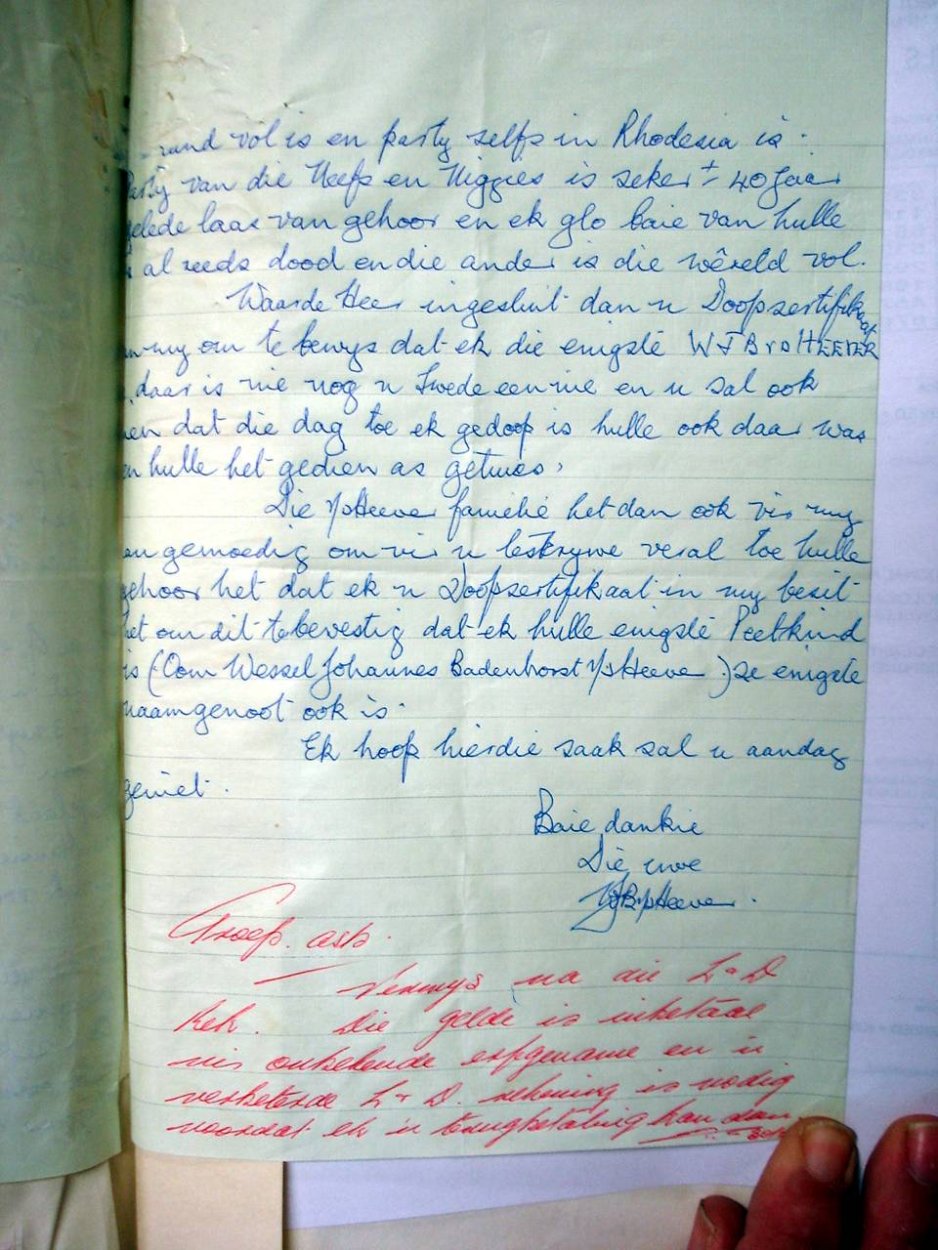 - rand vol is en party selfs in Rhodesia is.
Party van die Neefs en Niggies is seker ± 40 Jaar
gelede laas van gehoor en ek glo baie van hulle
is al reeds dood en die ander is die wêreld vol.
Waarde Heer ingesluit dan 'n Doopsertifikaat
van my om te bewys dat ek die enigste WJB v d HEEVER
is, daar is nie nog 'n twede een nie en u sal ook
sien dat die dag toe ek gedoop is hulle ook daar was
en hulle het gedien as getuies,
Die v/d Heever familie het dan ook vir my
aangemoedig om vir u te skrywe veral toe hulle
gehoor het dat ek 'n Doopsertifikaat in my besit
het om dit te bevestig dat ek hulle enigste Peetkind
is (Oom Wessel Johannes Badenhorst v/d Heever) se enigste
naamgenoot ook is.
Ek hoop hierdie saak sal u aandag
geniet.
Baie dankie
Die uwe
WJB v/d Heever.
asb.
Verwys na die L & D
Rek. Die gelde is inbetaal
vir onbekende erfgename en 'n
verbeterde L & D. rekening is nodig
voordat ek 'n terugbetaling kan doen